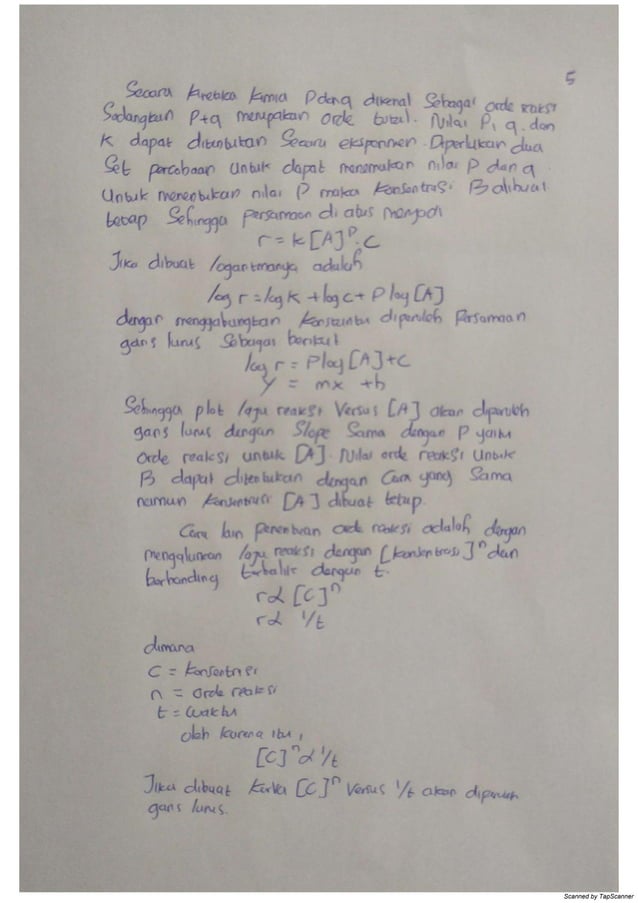 5
Secara kinetika kimia P dan q dikenal sebagai orde reaksi
Sedangkan P+q merupakan orde total. Nilai P, q, dan
K dapat ditentukan Secara eksperimen. Diperlukan dua
Set percobaan untuk dapat menemukan nilai P dan q.
Untuk menentukan nilai P maka konsentrasi B dibuat
tetap Sehingga persamaan di atas menjadi
r = k [A]ᴾ. C
Jika dibuat logaritmanya adalah
log r = log K + log c + P log [A]
dengan menggabungkan konstanta diperoleh Persamaan
garis lurus Sebagai berikut
log r = P log [A] + C
y = mx + b
Sehingga plot laju reaksi Versus [A] akan diperoleh
garis lurus dengan Slope Sama dengan P yaitu
Orde reaksi untuk [A]. Nilai orde reaksi Untuk
B dapat ditentukan dengan Cara yang Sama
namun konsentrasi [A] dibuat tetap.
Cara lain penentuan orde reaksi adalah dengan
mengalurkan laju reaksi dengan [konsentrasi]ⁿ dan
berbanding terbalik dengan t.
r α [C]ⁿ
r α 1/t
dimana
C = konsentrasi
n = orde reaksi
t = waktu
oleh karena itu,
[C]ⁿ α 1/t
Jika dibuat kurva [C]ⁿ Versus 1/t akan diperoleh
garis lurus.
Scanned by TapScanner